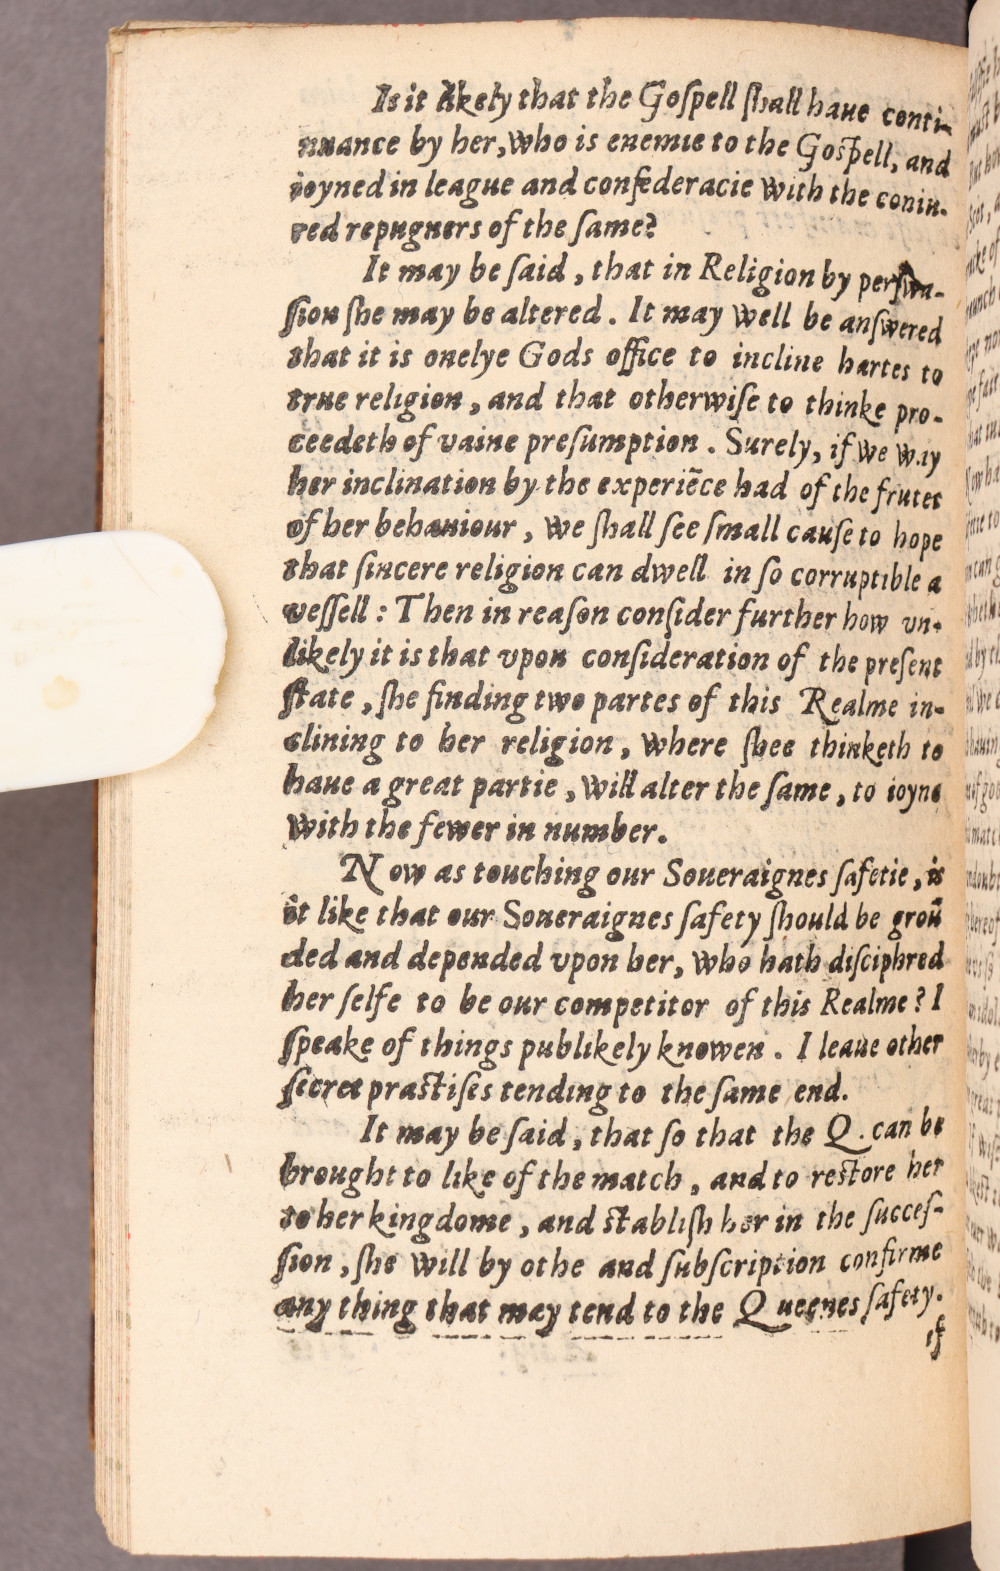 Is it likely that the Goſpell ſhall haue conti-
nuance by her, who is enemie to the Goſpell, and
ioyned in league and confederacie with the coniu-
red repugners of the ſame?
It may be ſaid, that in Religion by perſwa-
ſion ſhe may be altered. It may well be anſwered
that it is onelye Gods office to incline hartes to
true religion, and that otherwiſe to thinke pro-
ceedeth of vaine preſumption. Surely, if we way
her inclination by the experiēce had of the frutes
of her behauiour, we ſhall ſee ſmall cauſe to hope
that ſincere religion can dwell in ſo corruptible a
veſſell: Then in reaſon conſider further how vn-
likely it is that vpon conſideration of the preſent
ſtate, ſhe finding two partes of this Realme in-
clining to her religion, where ſhee thinketh to
haue a great partie, will alter the ſame, to ioyne
with the fewer in number.
Now as touching our Soueraignes ſafetie, is
it like that our Soueraignes ſafety ſhould be groũ
ded and depended vpon her, who hath diſciphred
her ſelfe to be our competitor of this Realme? I
ſpeake of things publikely knowen. I leaue other
ſecret practiſes tending to the ſame end.
It may be ſaid, that ſo that the Q. can be
brought to like of the match, and to reſtore her
to her kingdome, and ſtabliſh her in the ſucceſ-
ſion, ſhe will by othe and ſubſcription confirme
any thing that may tend to the Queenes ſafety.
if